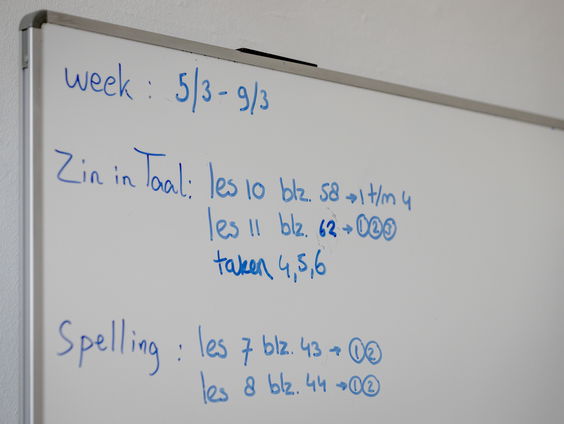 week : 5/3 - 9/3
Zin in Taal: les 10 blz. 58 → 1 t/m 4
les 11 blz. 62 → ① ② ③
taken 4,5,6
Spelling : les 7 blz. 43 → ① ②
les 8 blz. 44 → ① ②